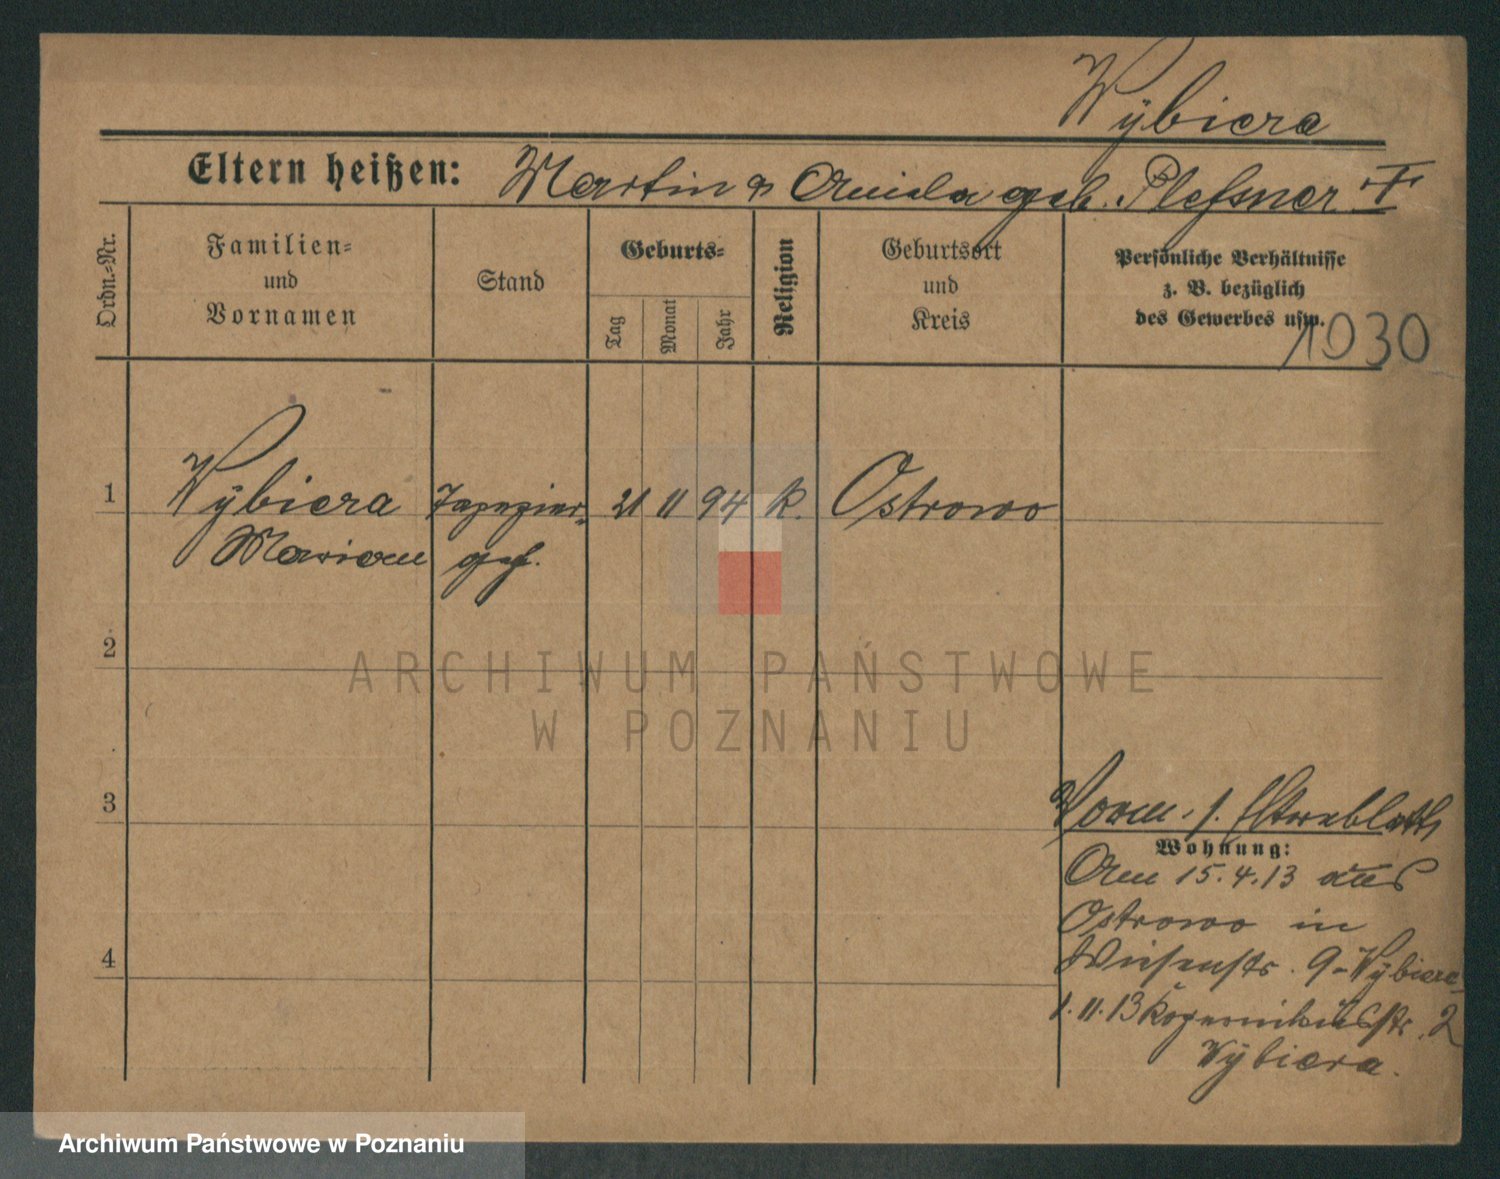 Wybiera
Eltern heißen: Martin & geb. Plessner †
Ordn.-Nr.
Familien-
und
Vornamen
Stand
Geburts-
Tag
Monat
Jahr
Religion
Geburtsort
und
Kreis
Persönliche Verhältnisse
z. B. bezüglich
des Gewerbes usw.
1030
1 Wÿbiera Tapezier- 21 11 94 k. Ostrowo
Marian ges.
2
3
4
Vorm. s.
Wohnung:
Am 15.4.13 aus
Ostrowo in
Wiesenstr. 9 - Wÿbiera
1.11.13 Kopernikusstr. 2
Wÿbiera.
ARCHIWUM PAŃSTWOWE
W POZNANIU
Archiwum Państwowe w Poznaniu